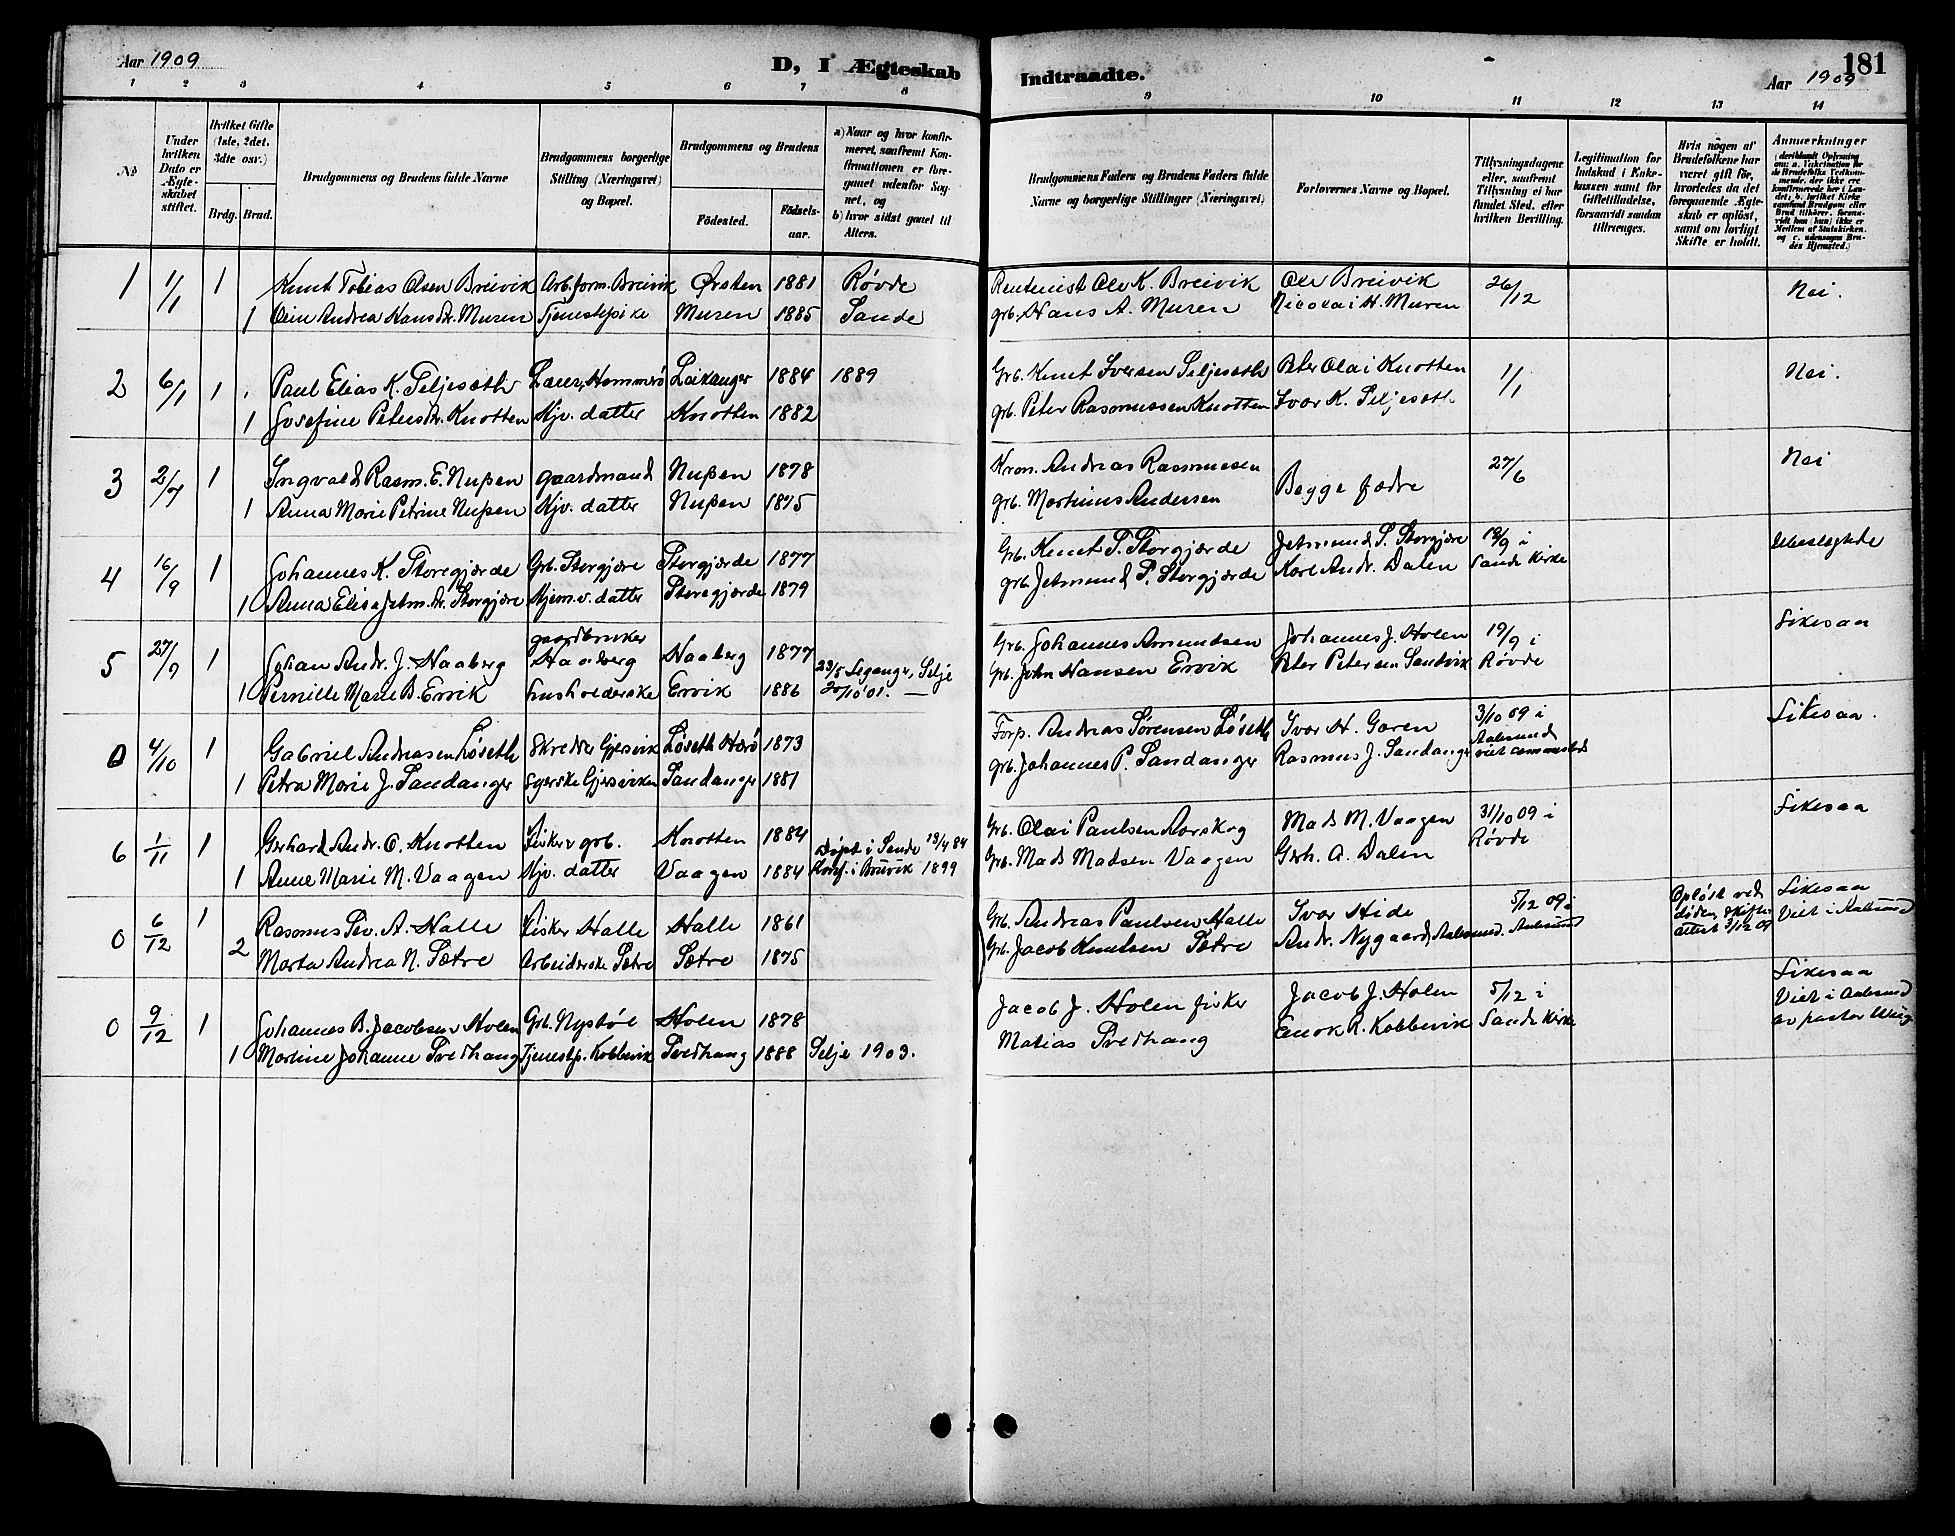 Aar 1909 D, I Ægteskab
1 2 3 4 5 6 7 8
No
Under hvilken Dato er Ægteskabet stiftet.
Hvilket Gifte (1ste, 2det, 3die osv.)
Brdg. Brud.
Brudgommens og Brudens fulde Navne
Brudgommens borgerlige Stilling (Næringsvei) og Bopæl.
Brudgommens og Brudens
Fødested. Fødsels-aar.
a) Naar og hvor konfirmeret, saafremt Konfirmationen er foregaaet udenfor Sognet, og
b) hvor sidst gaaet til Alters.
1 1/1 1 Knut Tobias Olsen Breivik Arb.form. Breivik Ørsten 1881 Røvde
1 Oline Andrea Hansdr. Muren Tjenestepike Muren 1885 Sande
2 6/1 1 Paul Elias K. Seljeseth Lærer, Hammerø Leikanger 1884 1889
1 Josefine Petersdr. Knotten Hjv. datter Knotten 1882
3 2/7 1 Ingvald Rasm. E. Nupen gaardmand Nupen 1878
1 Anna Marie Petrine Nupen Hjv. datter Nupen 1875
4 16/9 1 Johannes K. Storegjærde Grb. Storgjære Storgjærde 1877
1 Anna Elise Jetm.dr. Storgjære Hjem.v. datter Storegjærde 1879
5 27/9 1 Johan Andr. J. Haaberg gaardbruker Haaberg Haaberg 1877 23/5 Legange, Selje
1 Pernille Marie B. Ervik husholderske Ervik 1886 20/10 01. —
0 4/10 1 Gabriel Andreasen Løseth Skredder Gjersvik Løseth Harø 1873
1 Petra Marie J. Sandanger Syerske Gjersviken Sandanger 1881
6 1/11 1 Gerhard Andr. O. Knotten Fisker grb. Knotten 1884 Døpt i Sande 13/4 84
1 Anne Marie M. Vaagen Hjv. datter Vaagen 1884 Konf. i Breivik 1899
0 6/12 1 Rasmus Sev. A. Halle Fisker Halle Halle 1861
2 Marta Andrea N. Sætre Arbeiderske Sætre Sætre 1875
0 9/12 1 Johannes B. Jacobsen Holen Grb. Nystøl Holen 1878
1 Martine Johanne Tredhaug Tjenestp. Kobbevik Tredhaug 1888 Selje 1903.
Indtraadte. 181
Aar 1909
9 10 11 12 13 14
Brudgommens Faders og Brudens Faders fulde Navne og borgerlige Stillinger (Næringsvei)
Forlovernes Navne og Bopæl.
Tillysningsdagene eller, saafremt Tillysning ei har fundet Sted, efter hvilken Bevilling.
Legitimation for Indskud i Enkekassen samt for Giftetilladelse, forsaavidt saadan tiltrænges.
Hvis nogen af Brudefolkene har været gift før, hvorledes da det foregaaende Ægteskab er opløst, samt om lovligt Skifte er holdt.
Anmærkninger
(deriblandt Oplysning om: a. Vakcination for de Brudefolks Vedkommende, der ikke ere konfirmerede her i Landet; b. hvilket Kirkesamfund Brudgom eller Brud tilhører, forsaavidt han (hun) ikke er Medlem af Statskirken, og c. udensogns Brudes Hjemsted.)
Rentenist Ole K. Breivik Ole Breivik 26/12 Nei.
grb. Hans A. Muren Nicolai H. Muren
Grb. Knut Iversen Seljeseth Peter Olai Knotten 1/1 Nei.
grb. Peter Rasmussen Knotten Ivar K. Seljeseth
Kron. Andreas Rasmussen Begge fædre 27/6 Nei
grb. Martinus Andersen
Grb. Knut P. Storgjærde Jetmund S. Storgjære 12/9 i Ubeslegtede
grb. Jetmund P. Storgjærde Karl Andr. Dalen Sande Kirke
Grb. Johannes Amundsen Johannes J. Holen 19/9 i Likesaa
Grb. John Hansen Ervik Peter Petersen Sandvik Røvde
Forp. Andreas Sørensen Løseth Ivar H. Garen 3/10 09 i Likesaa.
grb. Johannes P. Sandanger Rasmus J. Sandanger Aalesund viet sammesteds
Grb. Olai Paulsen Aarskog Mads M. Vaagen 31/10 09 i Likesaa
Grb. Mads Madsen Vaagen Gerh. A. Dalen Røvde
Grb. Andreas Paulsen Halle Ivar Hide 5/12 09 i Opløst ved døden, skifteattest 3/12 09 Likesaa
Grb. Jacob Knutsen Sætre Andr. Nygaard, Aalesund. Aalesund Viet i Aalesund
Jacob J. Holen fisker Jacob J. Holen 5/12 i Likesaa
Matias Tredhaug Enok R. Kobbevik Sande Kirke Viet i Aalesund av pastor